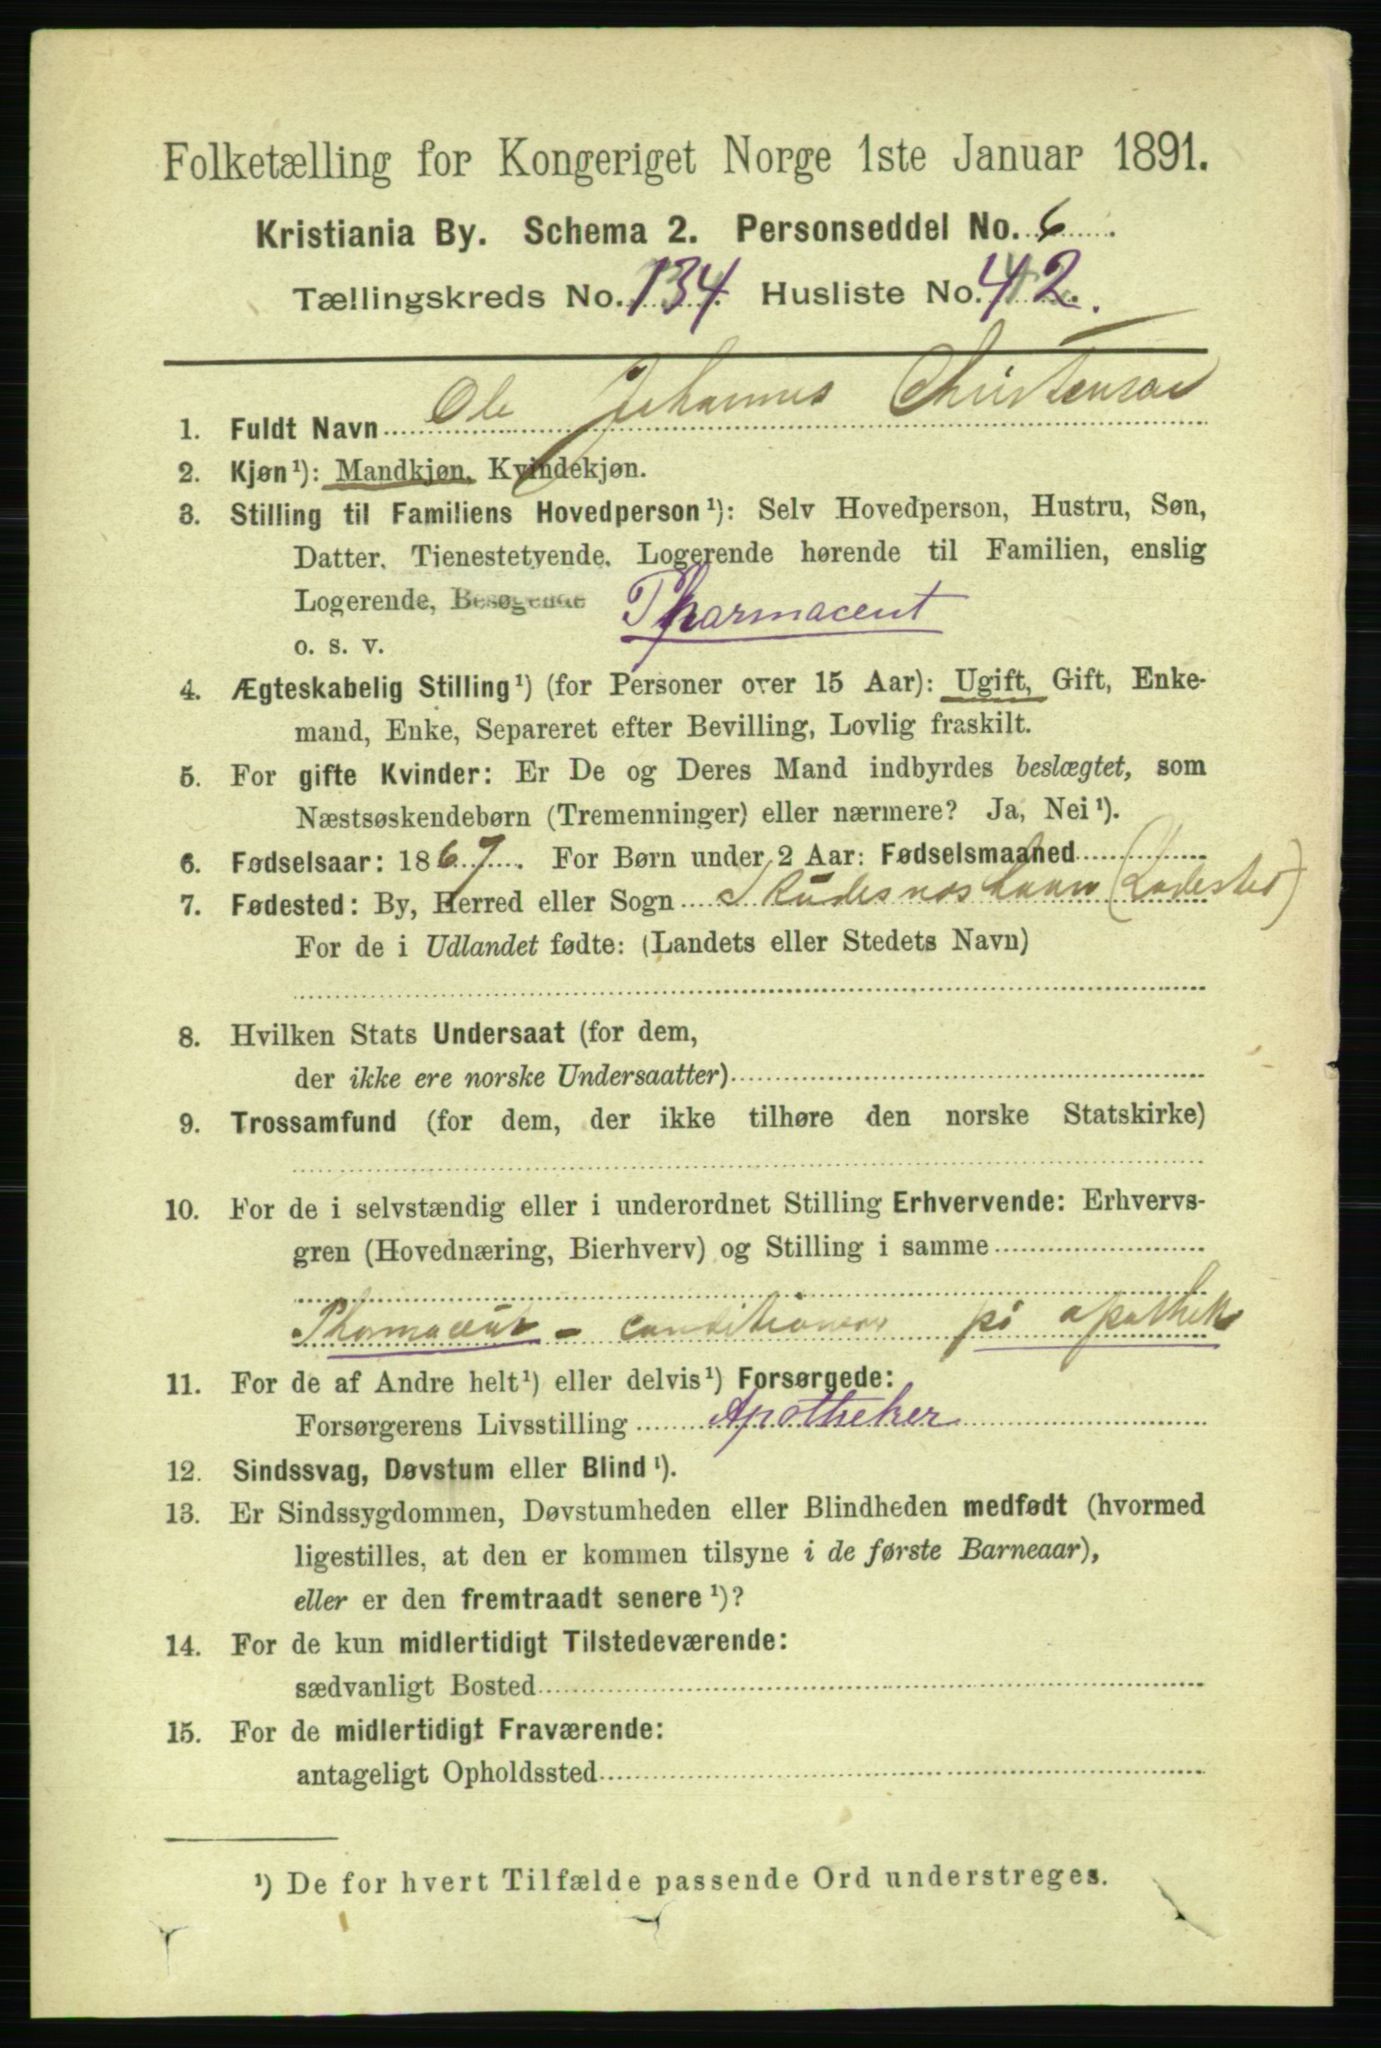 Folketælling for Kongeriget Norge 1ste Januar 1891.
Kristiania By. Schema 2. Personseddel No. 6.
Tællingskreds No. 134. Husliste No. 42.
1. Fuldt Navn Ole Johannes Christensen
2. Kjøn¹): Mandkjøn, Kvindekjøn.
3. Stilling til Familiens Hovedperson¹): Selv Hovedperson, Hustru, Søn,
Datter, Tjenestetyende, Logerende hørende til Familien, enslig
Logerende, Besøgende Pharmaceut
o. s. v.
4. Ægteskabelig Stilling¹) (for Personer over 15 Aar): Ugift, Gift, Enke-
mand, Enke, Separeret efter Bevilling, Lovlig fraskilt.
5. For gifte Kvinder: Er De og Deres Mand indbyrdes beslægtet, som
Næstsøskendebørn (Tremenninger) eller nærmere? Ja, Nei¹).
6. Fødselsaar: 1867. For Børn under 2 Aar: Fødselsmaaned
7. Fødested: By, Herred eller Sogn Skudesneshavn (Ladested)
For de i Udlandet fødte: (Landets eller Stedets Navn)
8. Hvilken Stats Undersaat (for dem,
der ikke ere norske Undersaatter)
9. Trossamfund (for dem, der ikke tilhøre den norske Statskirke)
10. For de i selvstændig eller i underordnet Stilling Erhvervende: Erhvervs-
gren (Hovednæring, Bierhverv) og Stilling i samme
Pharmaceut - conditionerer på apothek
11. For de af Andre helt¹) eller delvis¹) Forsørgede:
Forsørgerens Livsstilling Apotheker
12. Sindssvag, Døvstum eller Blind¹).
13. Er Sindssygdommen, Døvstumheden eller Blindheden medfødt (hvormed
ligestilles, at den er kommen tilsyne i de første Barneaar),
eller er den fremtraadt senere¹)?
14. For de kun midlertidigt Tilstedeværende:
sædvanligt Bosted
15. For de midlertidigt Fraværende:
antageligt Opholdssted
¹) De for hvert Tilfælde passende Ord understreges.